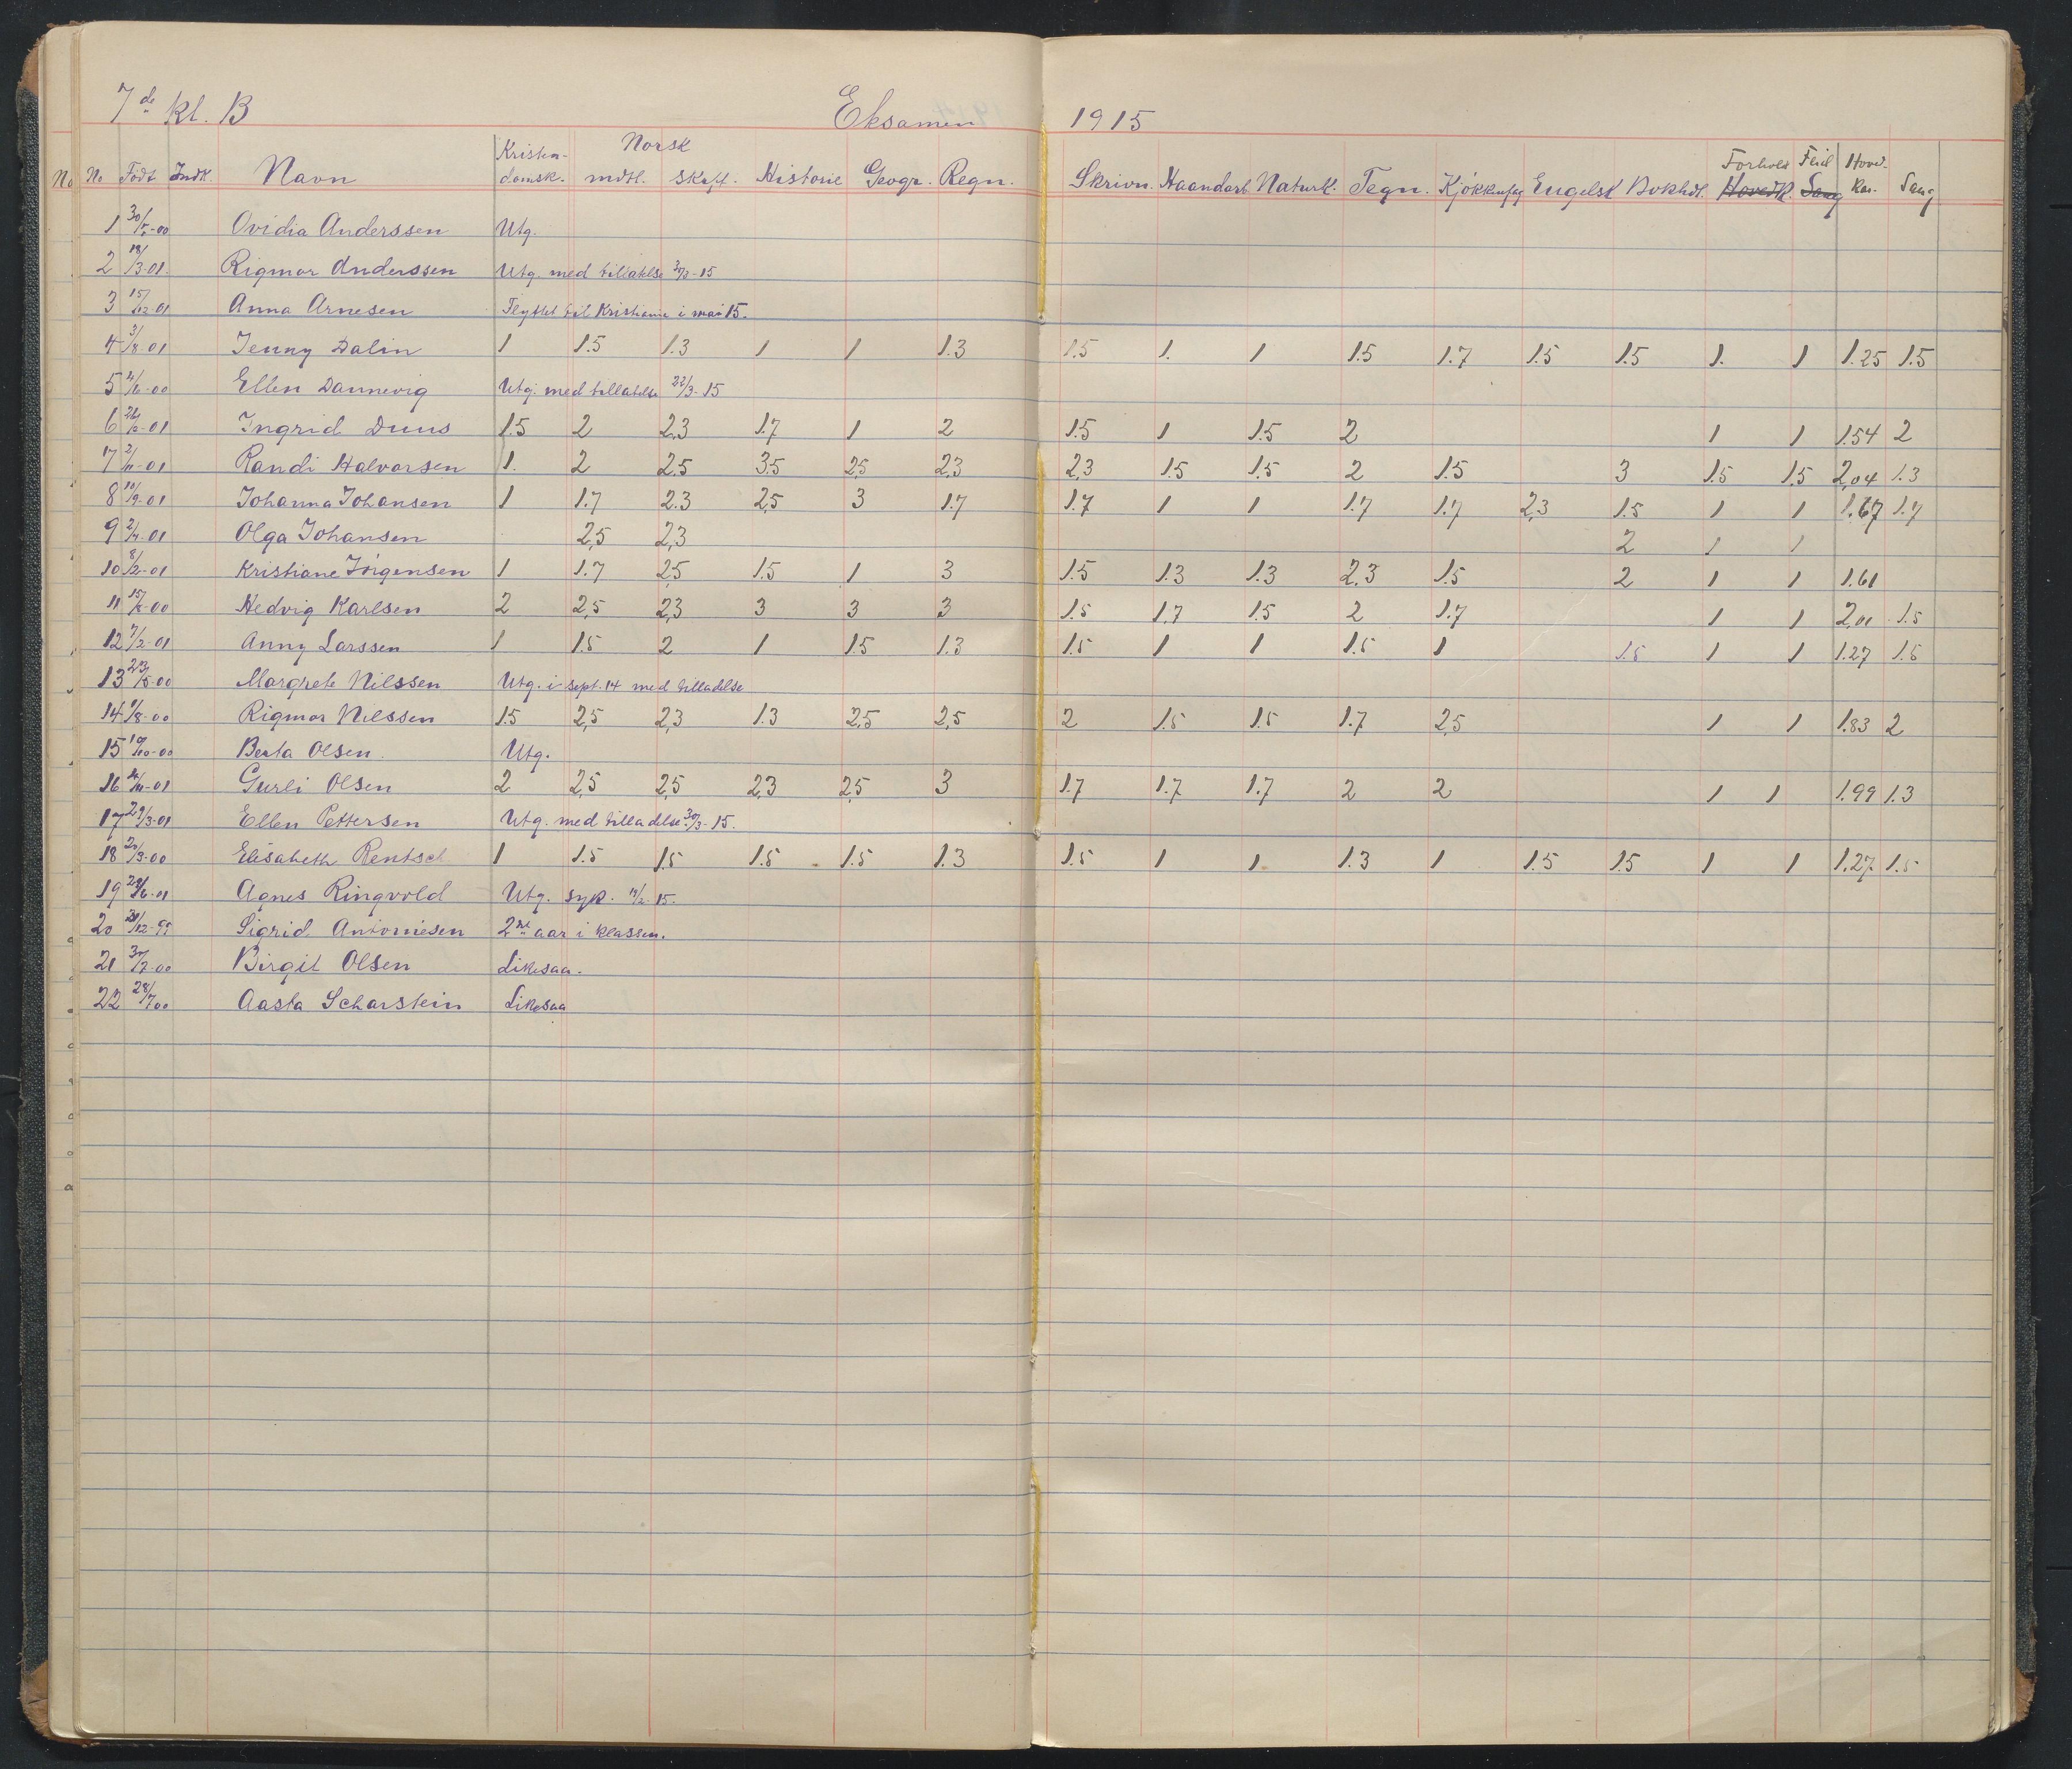 7de kl. B Eksamen 1915
Kristen- Norsk Forhold Flid Hoved-
No No Født Indk. Navn domsk. mdtl. skrftl. Historie Geogr. Regn. Skrivn. Haandarb. Naturk. Tegn. Kjøkkenfag Engelsk Bokhdl. Hovedk. Sang kar. Sang
1 30/5-00 Ovidia Anderssen Utg.
2 18/3-01 Rigmor Anderssen Utg. med tillatelse -15
3 15/12-01 Anna Arnesen Flyttet til Kristiania i mai 15.
4 3/8-01 Jenny Dalin 1 1.5 1.3 1 1 1.3 1.5 1. 1 1.5 1.7 1.5 1.5 1. 1 1.25 1.5
5 -00 Ellen Dannevig Utg. med tillatelse 22/3-15
6 -01 Ingrid Duus 1.5 2 2,3 1.7 1 2 1.5 1 1.5 2 1 1 1.54 2
7 2/11-01 Randi Halvorsen 1. 2 2.5 3.5 2,5 2,3 2,3 1.5 1.5 2 1.5 3 1.5 1.5 2,04 1.3
8 10/9-01 Johanna Johansen 1 1.7 2.3 2,5 3 1.7 1.7 1 1 1.7 1.7 2,3 1.5 1 1 1.67 1.7
9 2/4-01 Olga Johansen 2,5 2,3 2 1 1
10 8/2-01 Kristiane Jørgensen 1 1.7 2,5 1.5 1 3 1.5 1.3 1.3 2,3 1.5 2 1 1 1.61
11 -00 Hedvig Karlsen 2 2,5 2,3 3 3 3 1.5 1,7 1.5 2 1.7 1 1 2,01 1.5
12 7/2-01 Anny Larssen 1 1.5 2 1 1.5 1.3 1.5 1 1 1.5 1 1.5 1 1 1.27 1.5
13 23/5-00 Margrete Nilssen Utg. i sept. 14 med tilladelse
14 /8-00 Rigmor Nilssen 1.5 2,5 2,3 1.3 2,5 2,5 2 1.5 1.5 1.7 2,5 1 1 1.83 2
15 /10-00 Berta Olsen Utg.
16 /11-01 Gurli Olsen 2 2,5 2,5 2,3 2,5 3 1.7 1.7 1.7 2 2 1 1 1.99 1.3
17 29/3-01 Ellen Pettersen Utg. med tilladelse 30/3-15.
18 20/3-00 Elisabeth Rentsch 1 1.5 1.5 1.5 1.5 1.3 1.5 1 1 1.3 1 1.5 1.5 1 1 1.27 1.5
19 28/6-01 Agnes Ringvold Utg. syk. /2-15.
20 /12-99 Sigrid Antonisen 2net aar i klassen.
21 30/7-00 Birgit Olsen Likesaa.
22 28/7 00 Aasta Scharstein Likesaa